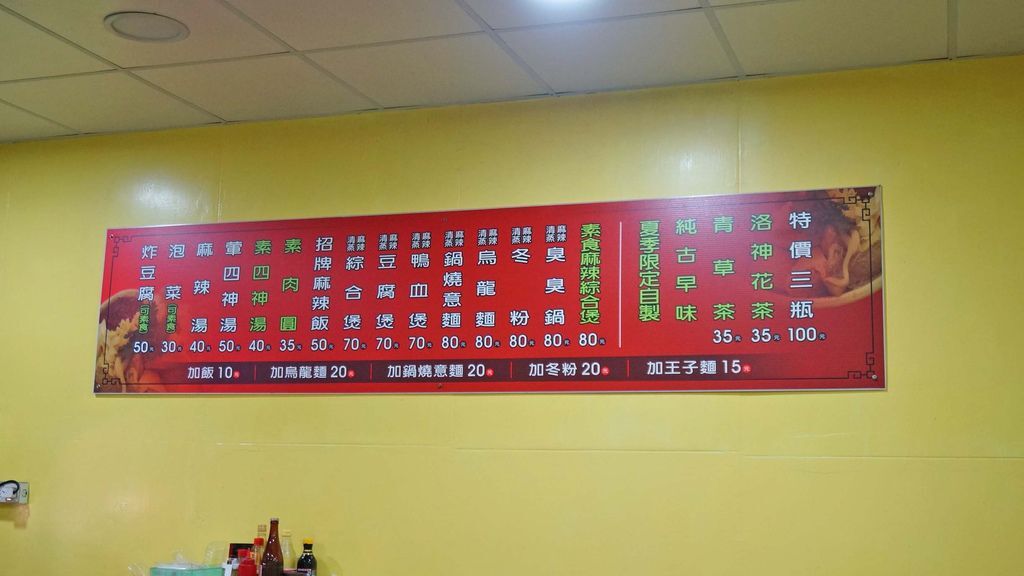 炸豆腐(可素食) 50元
泡菜(可素食) 30元
麻辣湯 40元
葷四神湯 50元
素四神湯 40元
素肉圓 35元
招牌麻辣飯 50元
清蒸 麻辣 綜合煲 70元
清蒸 麻辣 豆腐煲 70元
清蒸 麻辣 鴨血煲 70元
清蒸 麻辣 鍋燒意麵 80元
清蒸 麻辣 烏龍麵 80元
清蒸 麻辣 冬粉 80元
清蒸 麻辣 臭臭鍋 80元
素食麻辣綜合煲 80元
夏季限定自製
純古早味
青草茶 35元
洛神花茶 35元
特價三瓶 100元
加飯 10元
加烏龍麵 20元
加鍋燒意麵 20元
加冬粉 20元
加王子麵 15元